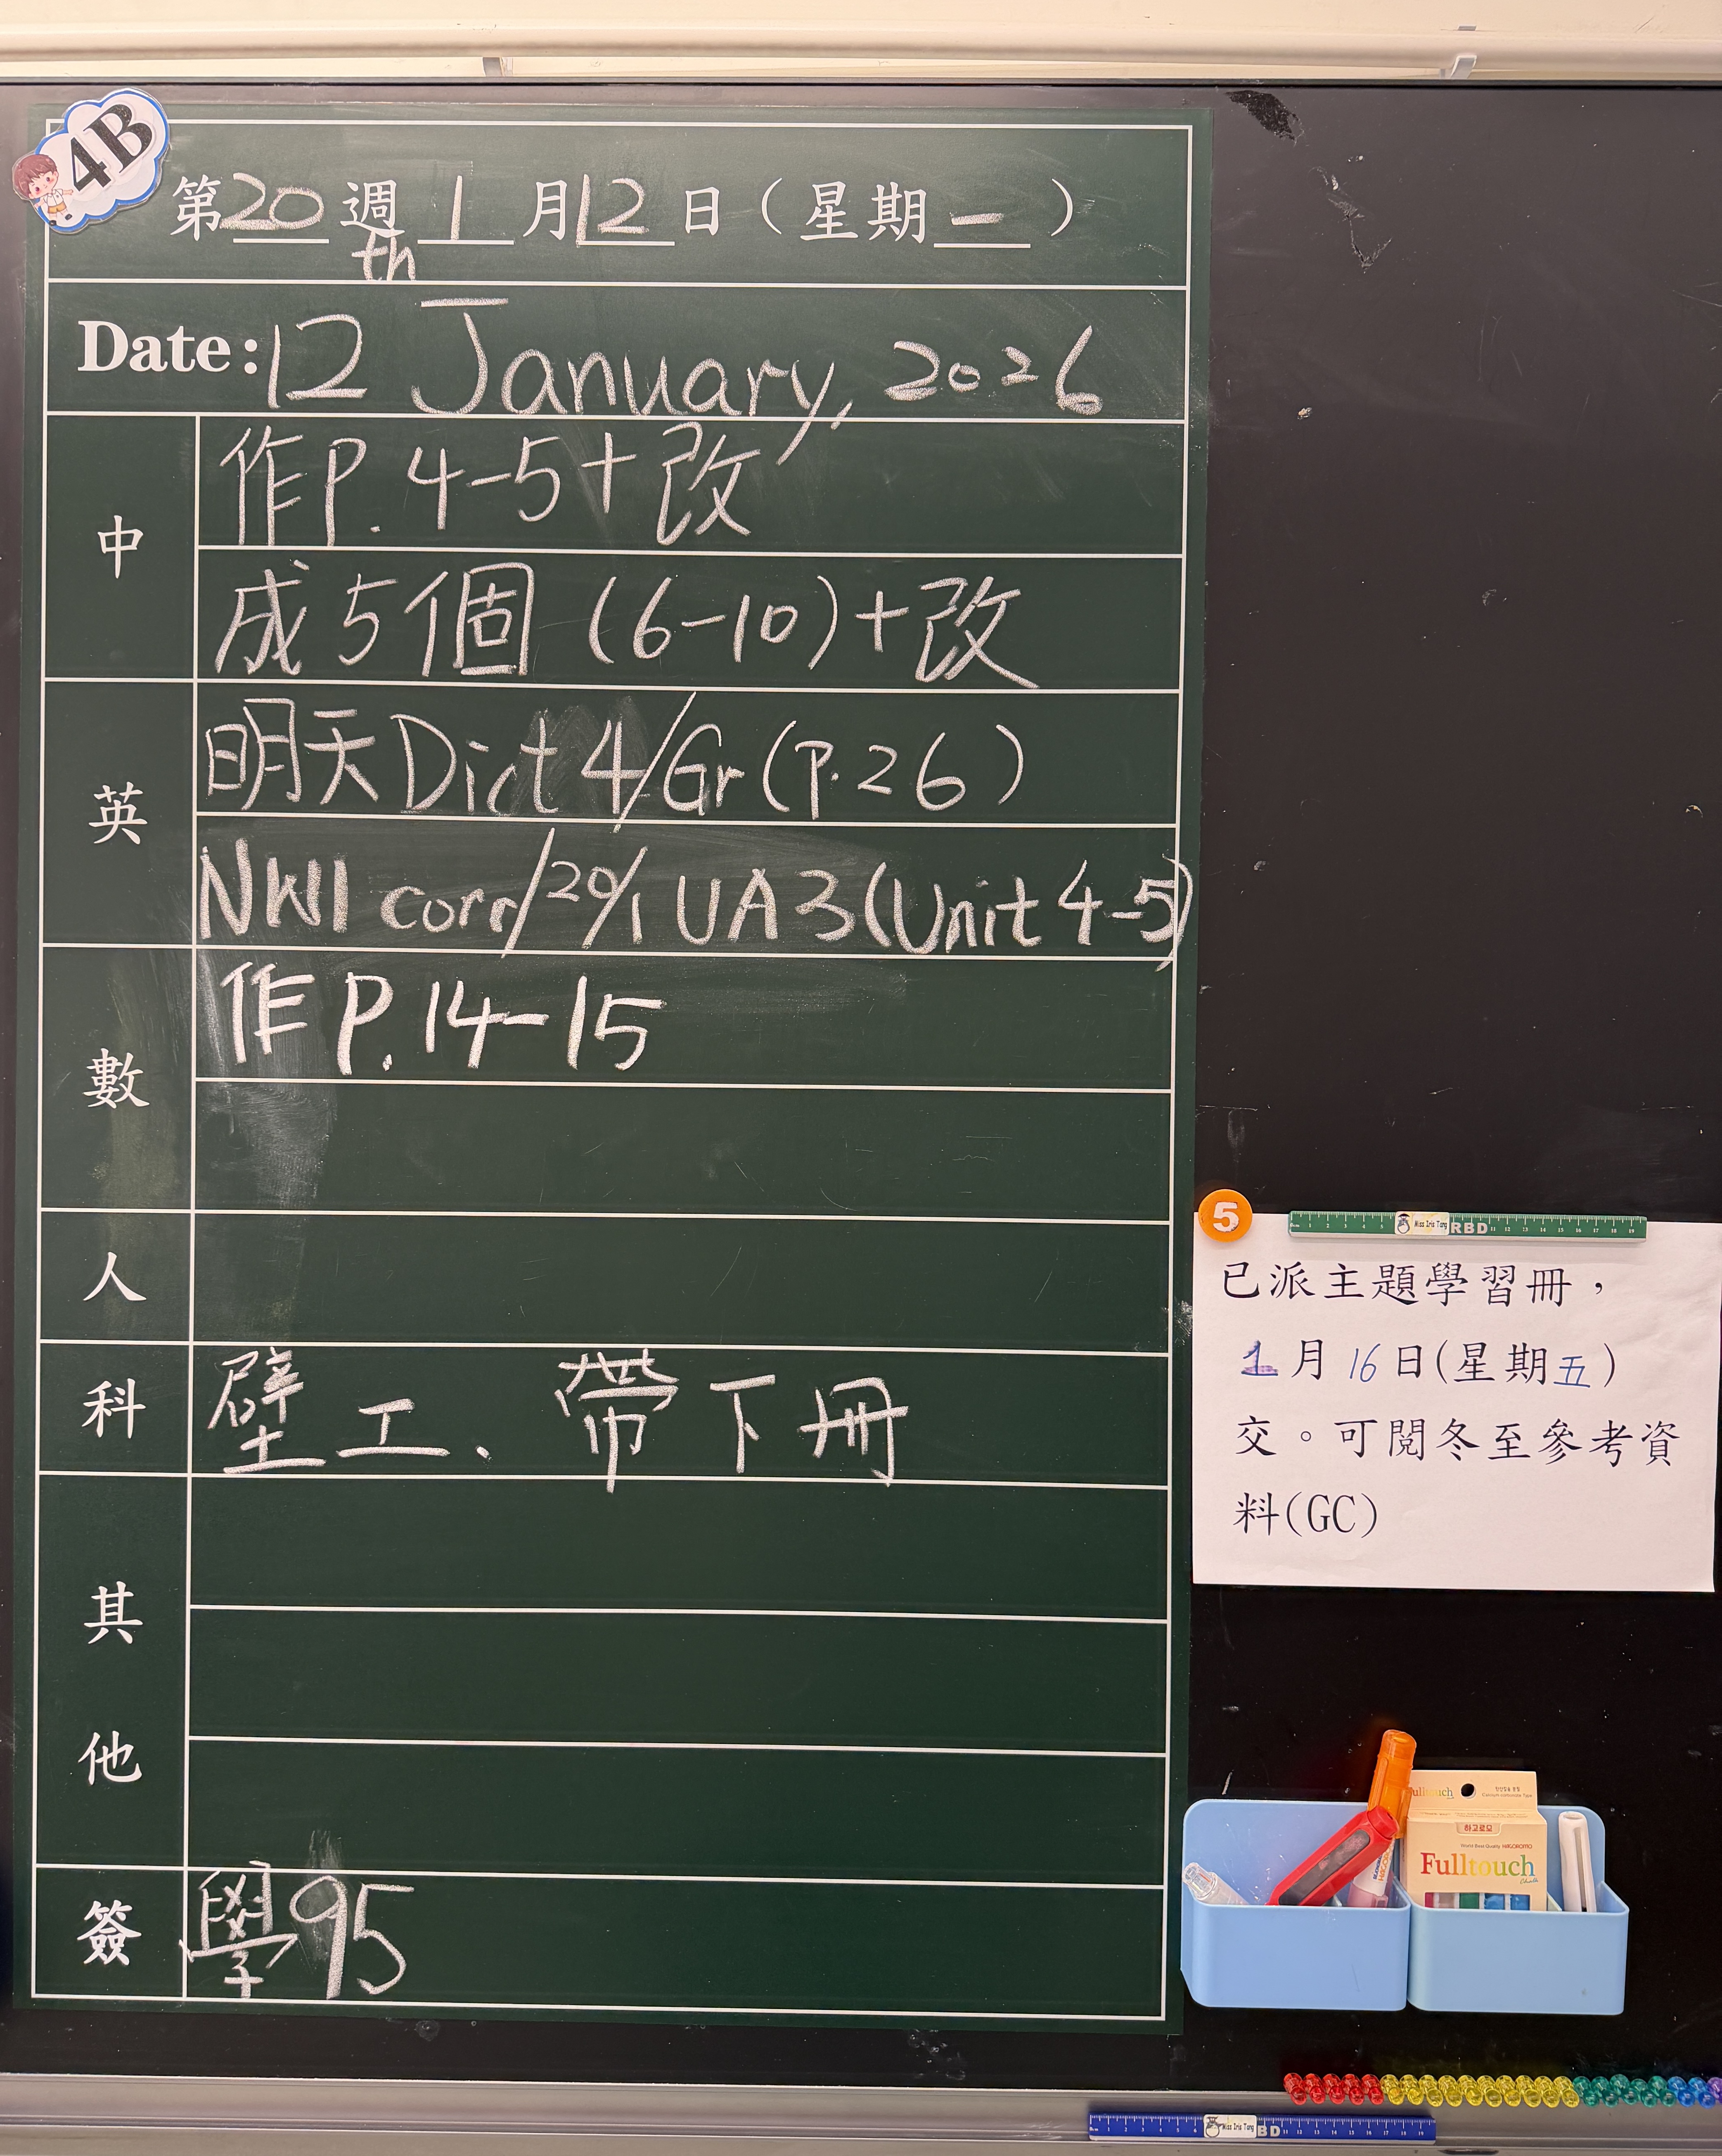 4B
第20週1月12日（星期一）
th
Date: 12 January, 2026
中
作P.4-5+改
成5個 (6-10)+改
英
明天Dict 4/Gr(p.26)
NW1 corr/20/1 UA3(Unit 4-5)
數
作P.14-15
人
科
壁工、帶下冊
其他
簽
學95
5
Miss Iris Tang
RBD
已派主題學習冊，
1月16日(星期五)
交。可閱冬至參考資
料(GC)
Fulltouch
하고로모
World Best Quality HAGOROMO
Fulltouch
Chalk
Miss Iris Tang
BD